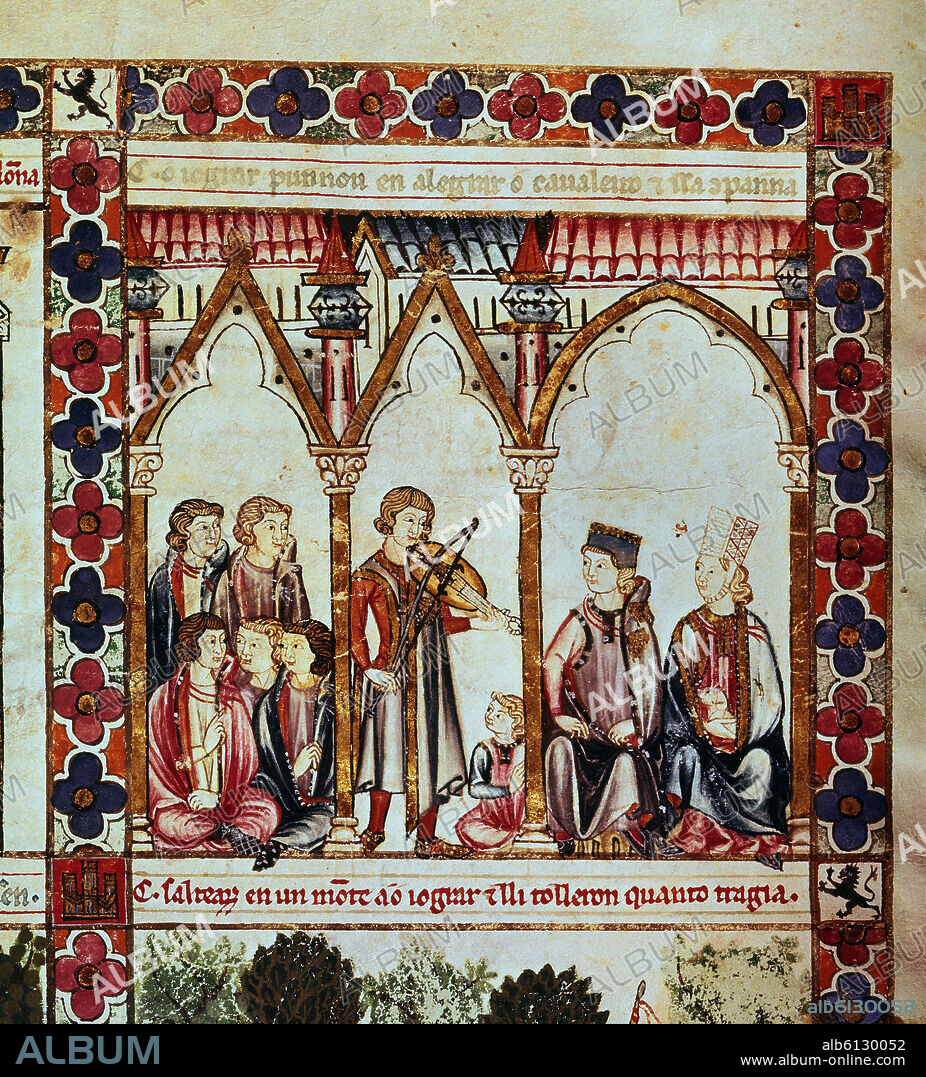 ión̄a
C. o iograr punnou en alegrar o cavaleiro ⁊ ssa cōpanna
en.
C. saltearō en un mōte aō iograr ⁊ lli tolleron quanto tragia.
ALBUM
alb6130052
ALBUM
alb6130052
www.album-online.com